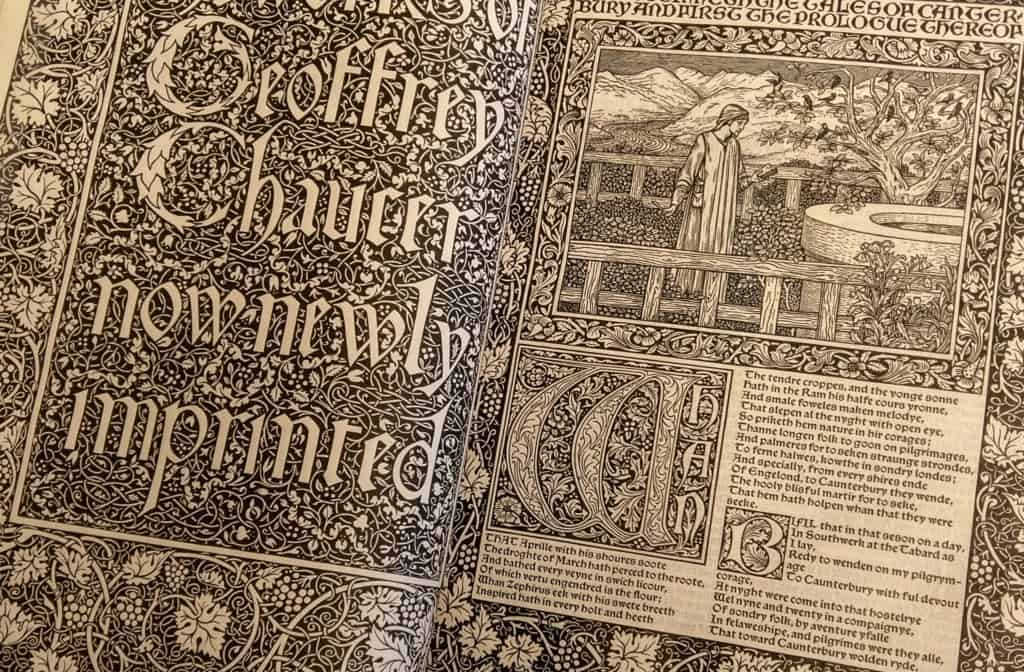 of
Geoffrey
Chaucer
now newly
imprinted
THE TALES OF CANTER-
BURY AND FIRST THE PROLOGUE THEREOF
WHAN
THAT Aprille with his shoures soote
The droghte of March hath perced to the roote,
And bathed every veyne in swich licour,
Of which vertu engendred is the flour;
Whan Zephirus eek with his swete breeth
Inspired hath in every holt and heeth
The tendre croppes, and the yonge sonne
Hath in the Ram his halfe cours yronne,
And smale foweles maken melodye,
That slepen al the nyght with open eye,
So priketh hem nature in hir corages;
Thanne longen folk to goon on pilgrimages,
And palmeres for to seken straunge strondes,
To ferne halwes, kowthe in sondry londes;
And specially, from every shires ende
Of Engelond, to Caunterbury they wende,
The hooly blisful martir for to seke,
That hem hath holpen whan that they were
seeke.
BIFIL that in that seson on a day,
In Southwerk at the Tabard as
I lay,
Redy to wenden on my pilgrym-
age
To Caunterbury with ful devout
corage,
At nyght were come into that hostelrye
Wel nyne and twenty in a compaignye,
Of sondry folk, by aventure yfalle
In felaweshipe, and pilgrimes were they alle,
That toward Caunterbury wolden ryde.